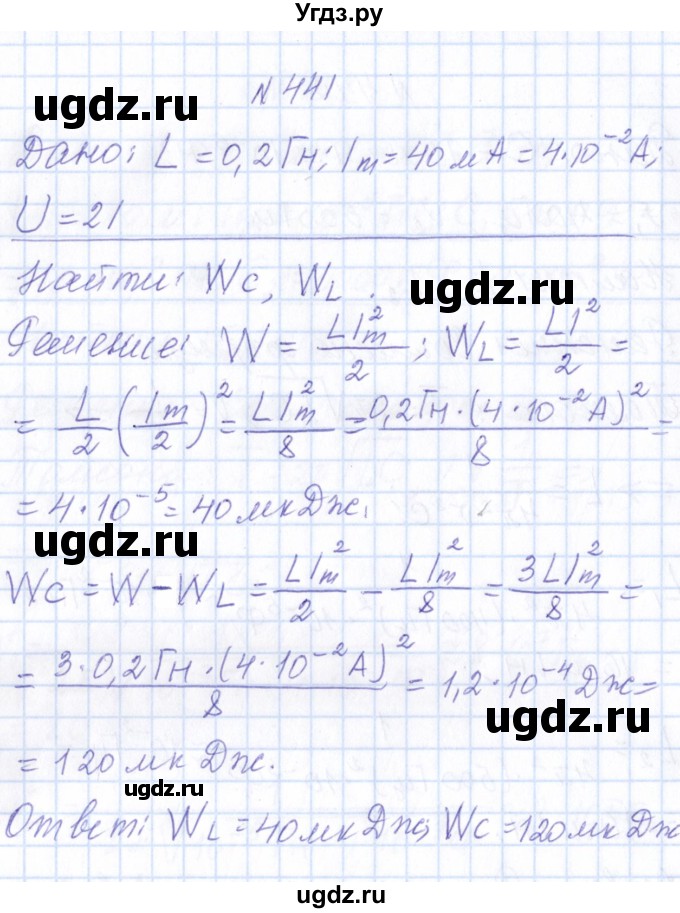 Угдз.ру
N 441
ugdz.ru
Дано: L = 0,2 Гн; Im = 40 мA = 4·10⁻² A;
U = 21
Найти: Wc, WL.
ugdz.ru
Решение: W = LIm²/2; WL = LI²/2 =
= L/2 (Im/2)² = LIm²/8 = 0,2Гн·(4·10⁻²A)²/8 =
= 4·10⁻⁵ = 40 мкДж;
ugdz.ru
Wc = W - WL = LIm²/2 - LIm²/8 = 3LIm²/8 =
= 3·0,2Гн·(4·10⁻²A)²/8 = 1,2·10⁻⁴ Дж =
ugdz.ru
= 120 мк Дж.
ugdz.ru
Ответ: WL = 40мкДж; Wc = 120мк Дж
ugdz.ru